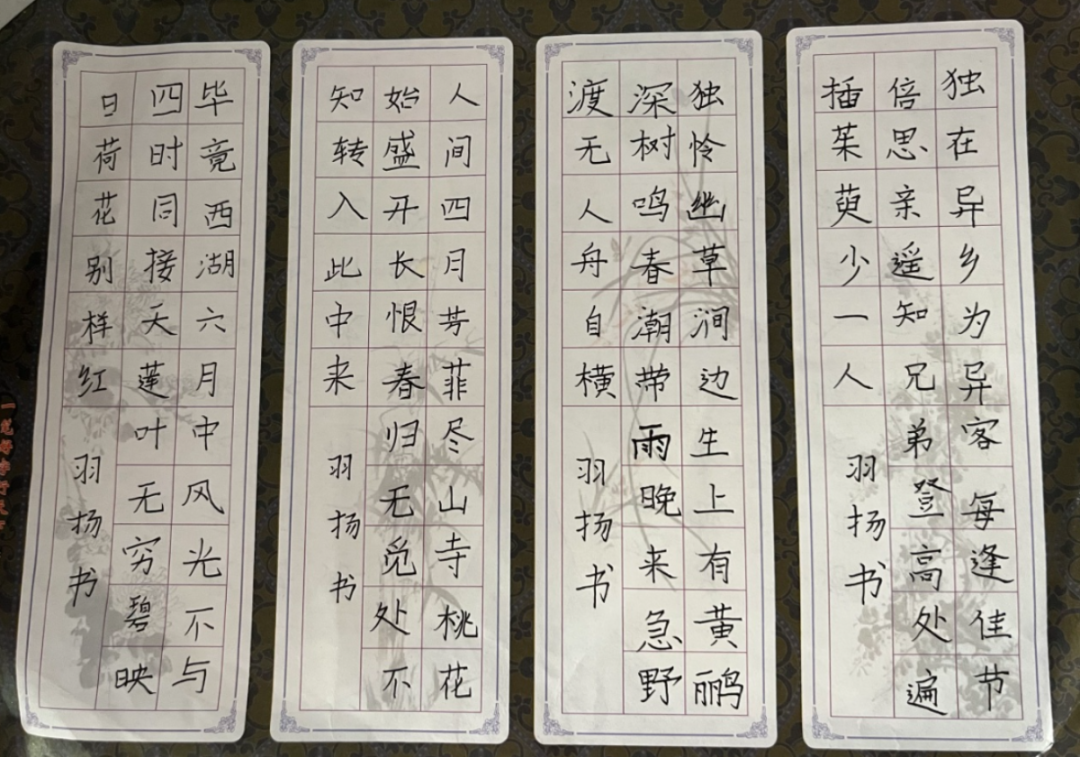 独在异乡为异客每逢佳节
倍思亲遥知兄弟登高处遍
插茱萸少一人
羽扬书
独怜幽草涧边生上有黄鹂
深树鸣春潮带雨晚来急野
渡无人舟自横
羽扬书
人间四月芳菲尽山寺桃花
始盛开长恨春归无觅处不
知转入此中来
羽扬书
毕竟西湖六月中风光不与
四时同接天莲叶无穷碧映
日荷花别样红
羽扬书